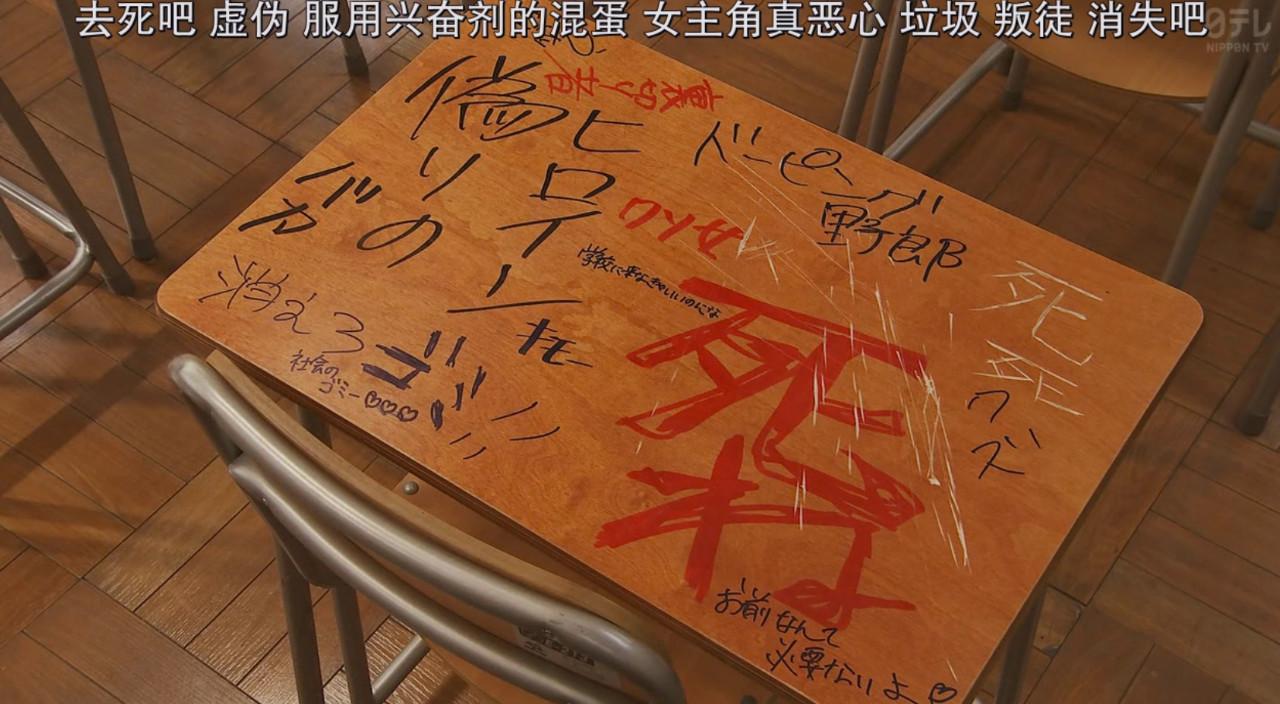 去死吧 虚伪 服用兴奋剂的混蛋 女主角真恶心 垃圾 叛徒 消失吧
日テレ
NIPPON TV
裏切り者
偽りの
ヒロイン
ドーピング
野郎
ガリ
学校に来なきゃいいのにな
死ね
死
死
クズ
キモー
消えろ
社会の
ゴミー♡♡♡
ゴミ
お前なんて
必要ないよ♡